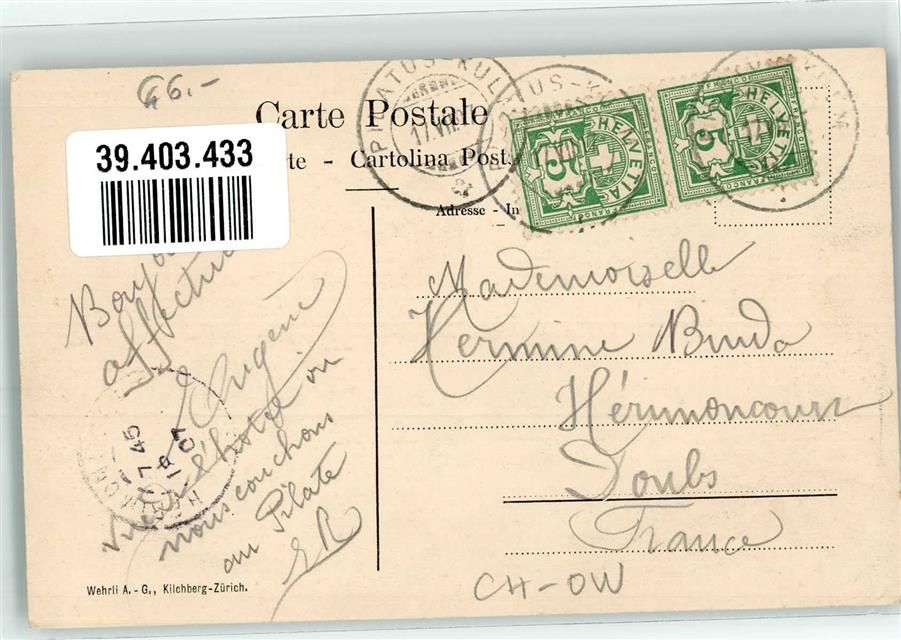 66.-
Carte Postale
39.403.433
- Cartolina Post
Adresse - In
PILATUS-KULM
17.VII
HELVETIA
FRANCO
5
HELVETIA
FRANCO
5
Bonjour
affectueux
Eugène
vue de l'hotel ou
nous couchons
au Pilate
ER
7 45
19
07
Mademoiselle
Hermine Binda
Hérimoncourt
Doubs
France
CH-OW
Wehrli A.-G., Kilchberg-Zürich.